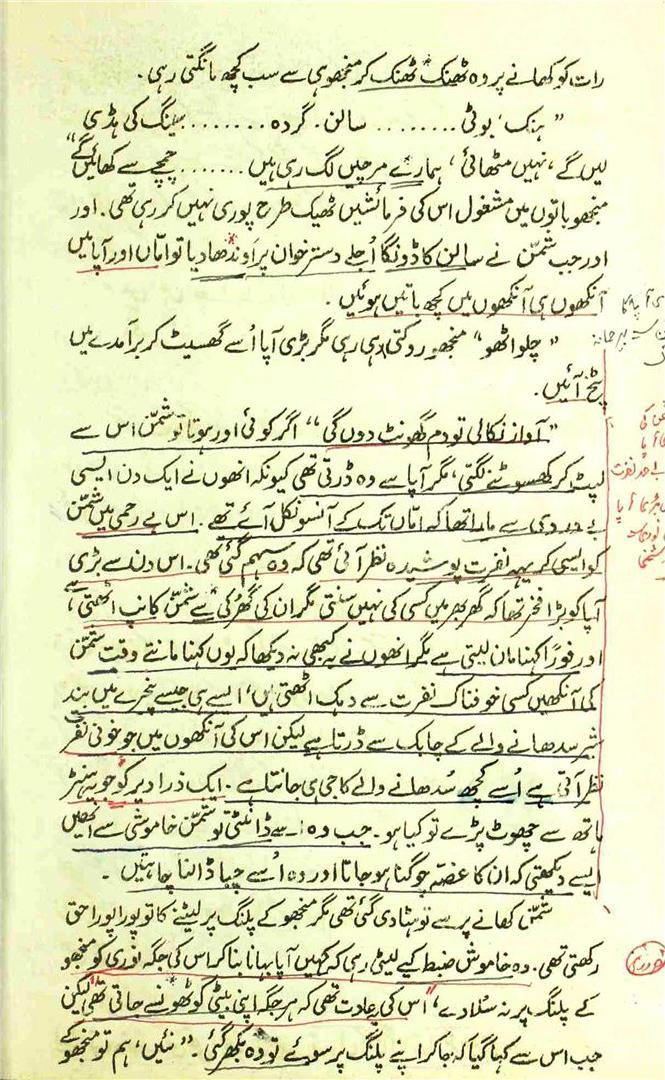 رات کو کھانے پر وہ ٹھنک ٹھنک کر منجھو ہی سے سب کچھ مانگتی رہی۔
”ہنک، بوٹی ........ سالن۔ گردہ ........ سینگ کی ہڈی
لیں گے، نہیں مٹھائی، ہمارے مرچیں لگ رہی ہیں ....... چمچے سے کھائیں گے“
منجھو باتوں میں مشغول اس کی فرمائشیں ٹھیک طرح پوری نہیں کر رہی تھی۔ اور
اور جب شمّن نے سالن کا ڈونگا اُجلے دسترخوان پر اَوندھا دیا تو امّاں اور آپا میں
آنکھوں ہی آنکھوں میں کچھ باتیں ہوئیں۔
”چلو اٹھو“ منجھو روکتی ہی رہی مگر بڑی آپا اُسے گھسیٹ کر برآمدے میں
پٹخ آئیں۔
”آواز نکالی تو دم گھونٹ دوں گی“ اگر کوئی اور ہوتا تو شمّن اس سے
لپٹ کر کھسوٹنے لگتی، مگر آپا سے وہ ڈرتی تھی کیونکہ انھوں نے ایک دن ایسی
بے دردی سے مارا تھا کہ امّاں تک کے آنسو نکل آئے تھے۔ اس بے رحمی میں شمّن
کو ایسی کریہہ نفرت پوشیدہ نظر آئی تھی کہ وہ سہم گئی تھی۔ اس دن سے بڑی
آپا کو بڑا فخر تھا کہ گھر بھر میں کسی کی نہیں سنتی مگر ان کی گھُڑکی سے شمّن کانپ اٹھتی ہے،
اور فوراً کہنا مان لیتی ہے مگر انھوں نے یہ کبھی نہ دیکھا کہ یوں کہنا مانتے وقت شمّن
کی آنکھیں کسی خوفناک نفرت سے دہک اٹھتی ہیں، ایسے ہی جیسے پنجرے میں بند
شیر سدھانے والے کے چابک سے ڈرتا ہے لیکن اس کی آنکھوں میں جو خونی نفرت
نظر آتی ہے اُسے کچھ سُدھانے والے کا جی ہی جانتا ہے۔ ایک ذرا دیر کو جو یہ ہنٹر
ہاتھ سے چھوٹ پڑے تو کیا ہو۔ جب وہ اسے ڈانٹتی تو شمّن خاموشی سے انھیں
ایسے دیکھتی کہ ان کا غصّہ چوگنا ہو جاتا اور وہ اُسے چبا ڈالنا چاہتیں۔
شمّن کھانے پر سے تو ہٹا دی گئی تھی مگر منجھو کے پلنگ پر لیٹنے کا تو پورا پورا حق
رکھتی تھی۔ وہ خاموش ضبط کیے لیٹی رہی کہ کہیں آپا بہانا بنا کر اس کی جگہ نوری کو منجھو
کے پلنگ پر نہ سُلا دے، اس کی عادت تھی کہ ہر جگہ اپنی بیٹی کو ٹھونسے جاتی تھی لیکن
جب اس سے کہا گیا کہ جا کر اپنے پلنگ پر سوئے تو وہ بکھر گئی۔ ”نئیں، ہم تو منجھو کے